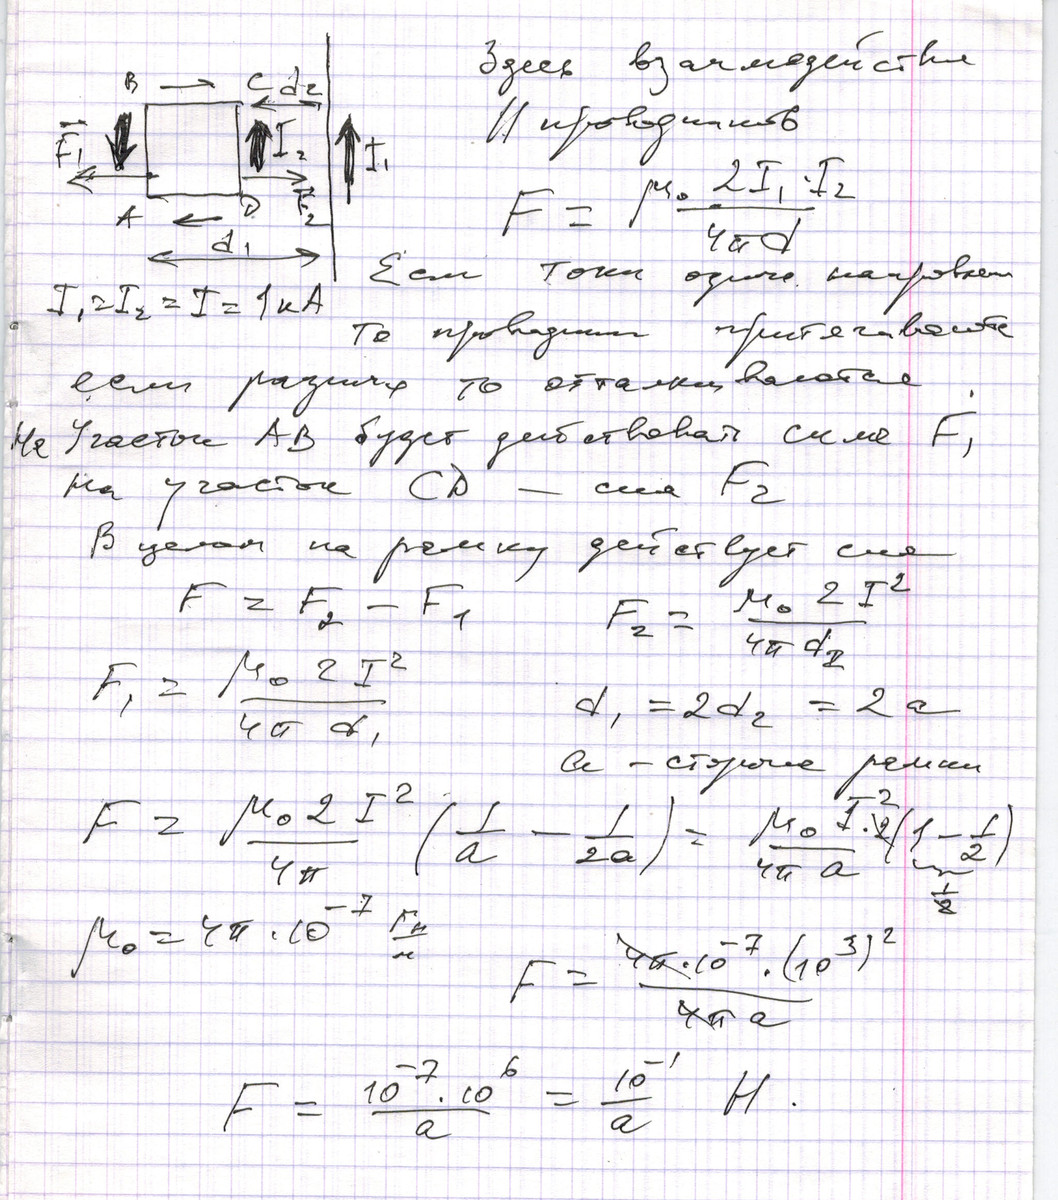 Здесь взаимодействие
|| проводников
B → C d₂
F₁ I₂ I₁
A ← D F₂
d₁
F = μ₀ 2I₁·I₂ / 4πd
Если токи одинак. направлен
I₁ = I₂ = I = 1кА
то проводники притягиваются
если разных то отталкиваются.
На участок AB будет действовать сила F₁
на участок CD — сила F₂
В целом на рамку действует сила
F = F₂ − F₁ F₂ = μ₀ 2I² / 4π d₂
F₁ = μ₀ 2I² / 4π d₁ d₁ = 2d₂ = 2a
a — сторона рамки
F = μ₀ 2I² / 4π (1/a − 1/2a) = μ₀ I²·2 / 4π a (1 − 1/2)
1/2
μ₀ = 4π·10⁻⁷ Гн/м
F = 4π·10⁻⁷·(10³)² / 4π a
F = 10⁻⁷·10⁶ / a = 10⁻¹ / a Н.